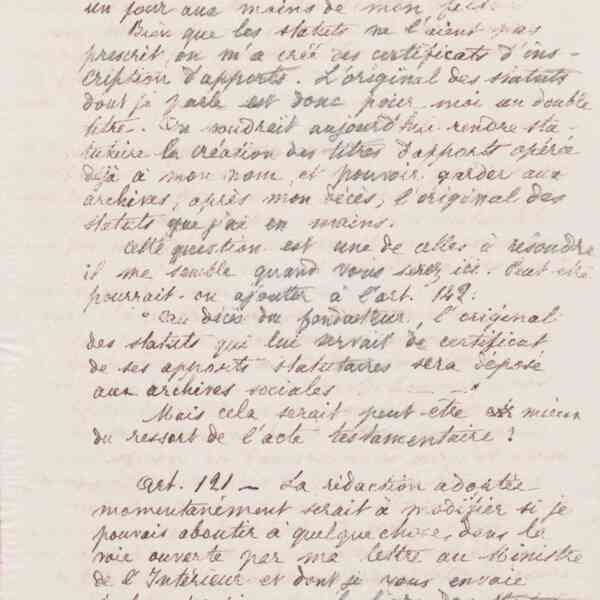 un jour aux mains de mon
Bien que les statuts ne l'aient pas
prescrit, on m'a créé des certificats d'ins-
cription d'apports. L'original des statuts
dont je parle est donc pour moi un double
titre. On voudrait aujourd'hui rendre sta-
tutaire la création des titres d'apports opérée
déjà à mon nom, et pouvoir garder aux
archives, après mon décès, l'original des
statuts que j'ai en mains.
Cette question est une de celles à résoudre
il me semble quand vous serez ici. Peut-être
pourrait-on ajouter à l'art. 142:
"Au décès du fondateur, l'original
des statuts qui lui servait de certificat
de ses apports statutaires sera déposé
aux archives sociales"
Mais cela serait peut-être mieux
du ressort de l'acte testamentaire?
Art. 121 — La rédaction adoptée
momentanément serait à modifier si je
pouvais aboutir à quelque chose, dans la
voie ouverte par ma lettre au Ministre
de l'Intérieur et dont je vous envoie